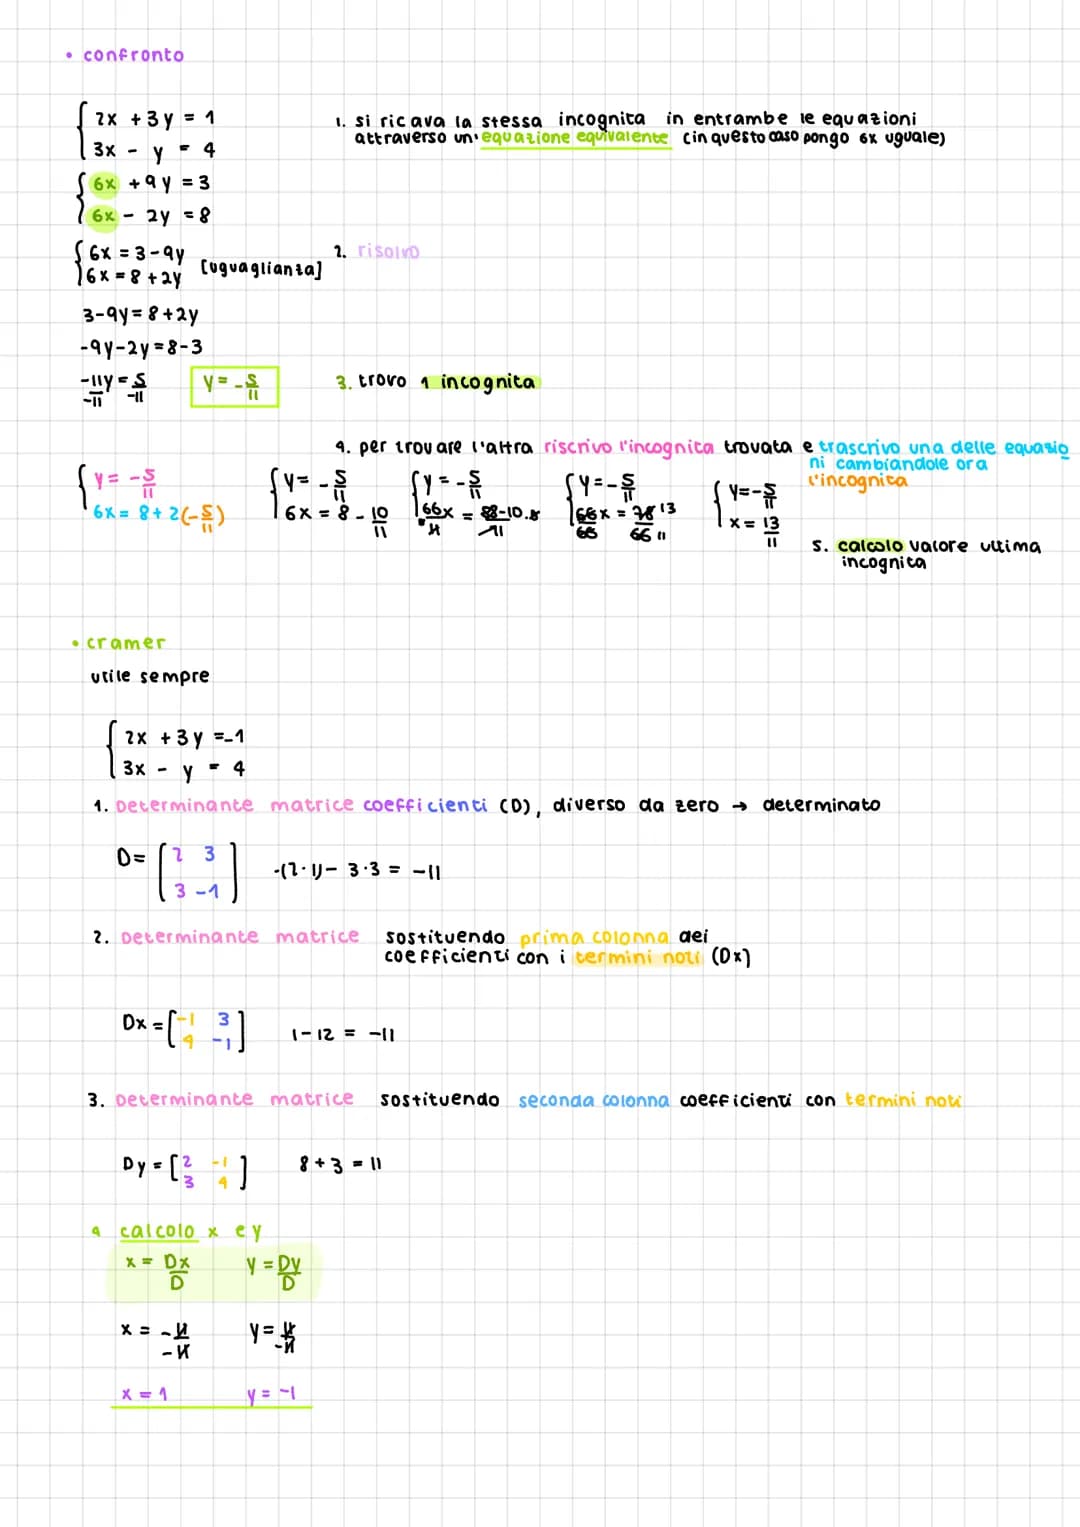 • confronto
2x + 3y = 1
3x - y = 4
1. si ricava la stessa incognita in entrambe le equazioni
attraverso un'equazione equivalente (in questo caso pongo 6x uguale)
6x + 9y = 3
6x - 2y = 8
6x = 3-9y
6x = 8+2y
[uguaglianza]
2. risolvo
3-9y = 8+2y
-9y-2y = 8-3
-11y/-11 = 5/-11
y = -5/11
3. trovo 1 incognita
4. per trovare l'altra riscrivo l'incognita trovata e trascrivo una delle equazio
ni cambiandole ora
l'incognita
y = -5/11
6x = 8+2(-5/11)
y = -5/11
6x = 8 - 10/11
y = -5/11
66x/11 = 88-10/11
y = -5/11
66x/66 = 78 13/66 11
y = -5/11
x = 13/11
5. calcolo valore ultima
incognita
• cramer
utile sempre
2x + 3y = -1
3x - y = 4
1. Determinante matrice coefficienti (D), diverso da zero → determinato
D = [2 3
3 -1]
-(2·1) - 3·3 = -11
2. Determinante matrice sostituendo prima colonna dei
coefficienti con i termini noti (Dx)
Dx = [-1 3
4 -1]
1-12 = -11
3. Determinante matrice sostituendo seconda colonna coefficienti con termini noti
Dy = [2 -1
3 4]
8+3 = 11
4 calcolo x e y
x = Dx/D y = Dy/D
x = -11/-11 y = 11/-11
x = 1 y = -1